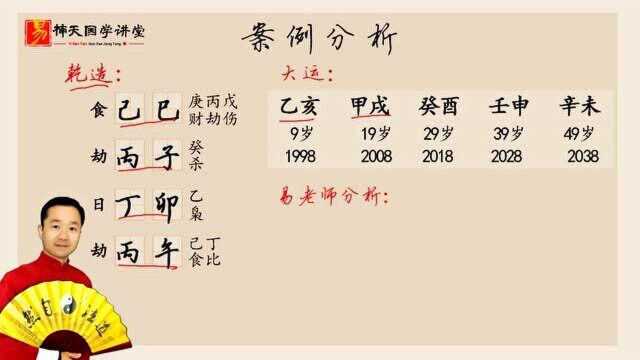 易
楠天国学讲堂
Yi Nan Tian Guo Xue Jiang Tang
案例分析
乾造：
食 己 巳 庚丙戊
财劫伤
劫 丙 子 癸
杀
日 丁 卯 乙
枭
劫 丙 午 己丁
食比
大运：
乙亥 甲戌 癸酉 壬申 辛未
9岁 19岁 29岁 39岁 49岁
1998 2008 2018 2028 2038
易老师分析：
然自法道